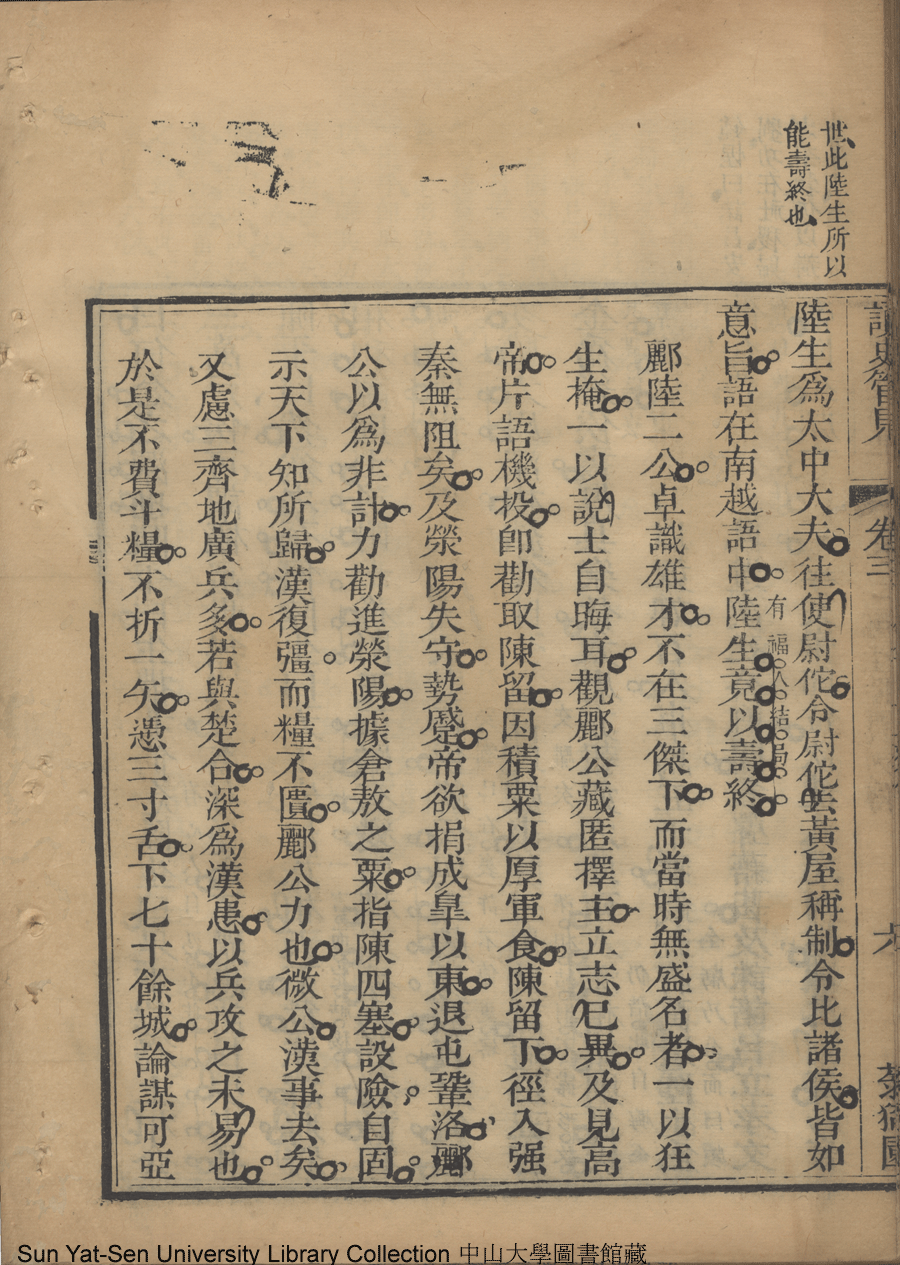 世此陸生所以
能壽終也
讀史智
卷三
陸生爲太中大夫往使尉佗令尉佗去黃屋稱制令比諸侯皆如
意旨語在南越語中陸生竟以壽終
有福人結局
酈陸二公卓識雄才不在三傑下而當時無盛名者一以狂
生掩一以說士自晦耳觀酈公藏匿擇主立志已異及見高
帝片語機投卽勸取陳留因積粟以厚軍食陳留下徑入强
秦無阻矣及滎陽失守勢蹙帝欲捐成臯以東退屯鞏洛酈
公以爲非計力勸進滎陽據倉敖之粟指陳四塞設險自固
示天下知所歸漢復彊而糧不匱酈公力也微公漢事去矣
又慮三齊地廣兵多若與楚合深爲漢患以兵攻之未易也
於是不費斗糧不折一矢憑三寸舌下七十餘城論謀可亞
Sun Yat-Sen University Library Collection 中山大學圖書館藏